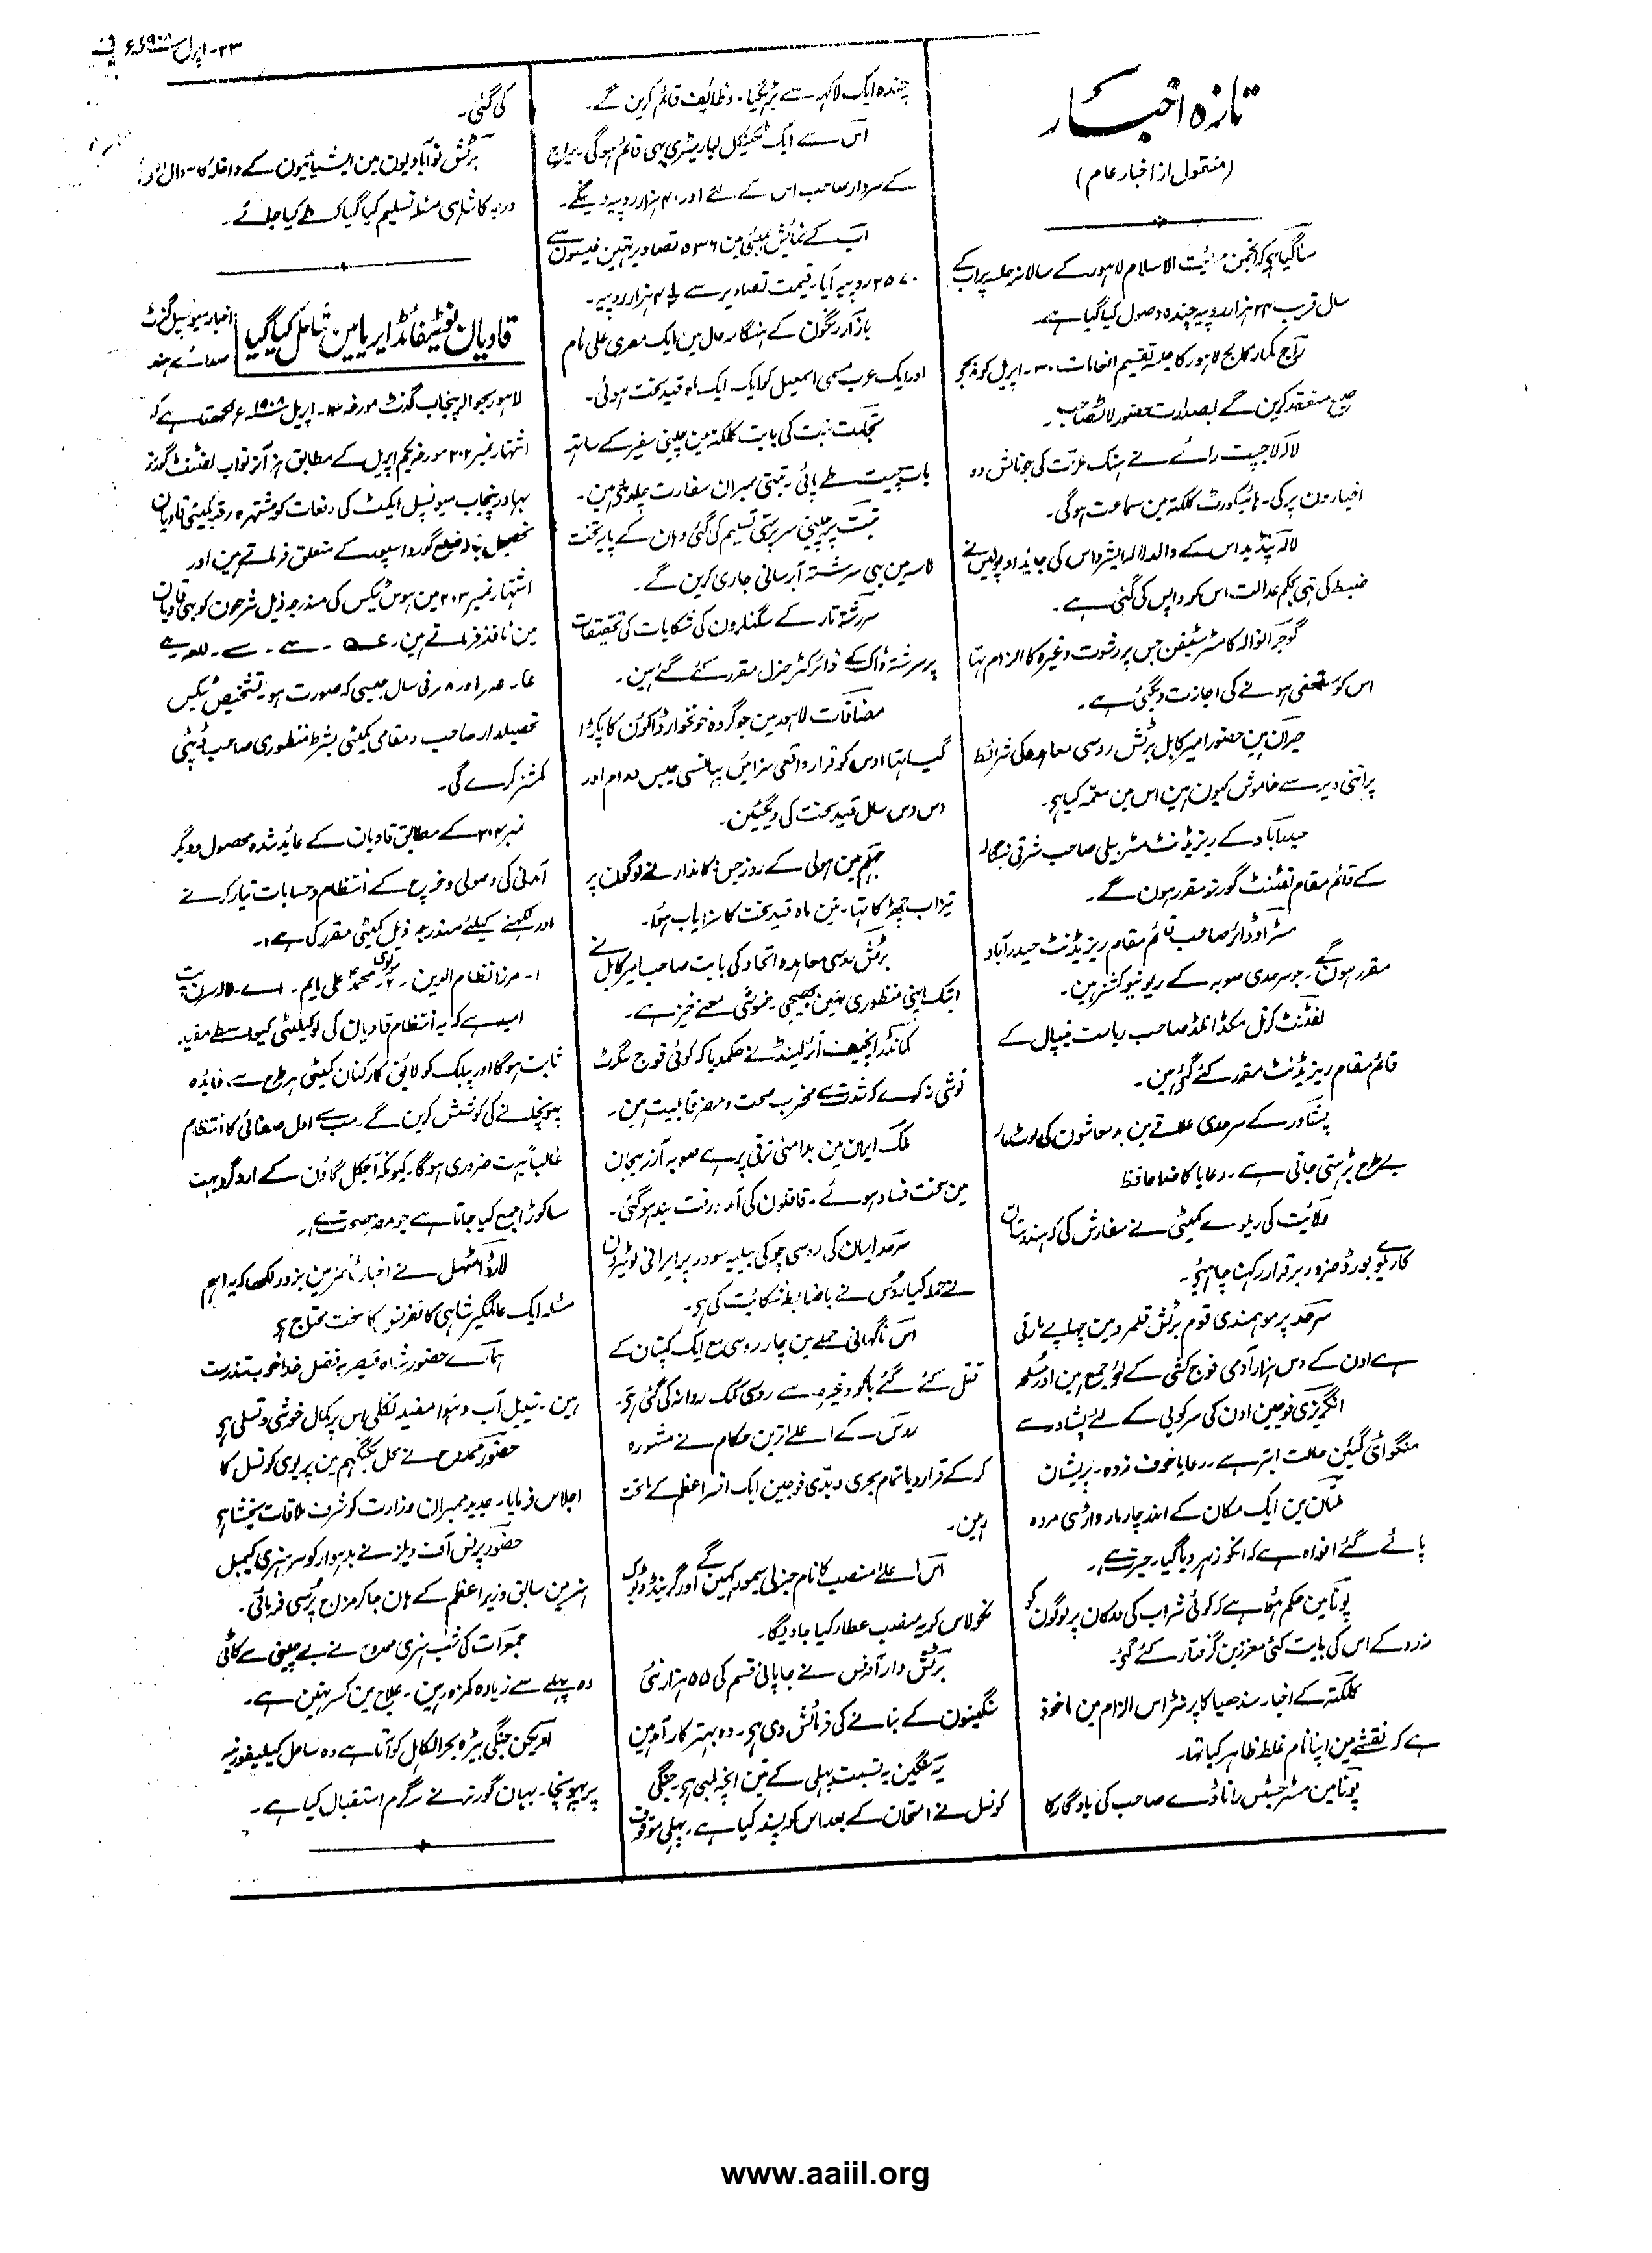 ۲۳-اپریل ۱۹۰۸ء
تازہ اخبار
(منقول از اخبار عام)
سنا گیا ہے کہ انجمن حمایت الاسلام لاہور کے سالانہ جلسہ پر اب کے
سال قریب ۲۴ ہزار روپیہ چندہ وصول کیا گیا ہے۔
راج کمار کالج لاہور کا جلسہ تقسیم انعامات ۳۰۔ اپریل کو ۵ بجے
صبح منعقد کرین گے بصدارت حضور لاٹ صاحب۔
لالہ لاجپت رائے نے ہتک عزت کی جو نالش دو
اخبارون پر کی۔ ہائیکورٹ کلکتہ مین سماعت ہوگی۔
لالہ پنڈیداس کے والد لالہ ایشرداس کی جایداد پولیس نے
ضبط کی تہی بحکم عدالت اس کو واپس کی گئی ہے۔
گوجرانوالہ کا مسٹر سٹیفن جس پر رشوت وغیرہ کا الزام تہا
اس کو مستعفی ہونے کی اجازت دیگئی ہے۔
حیران ہین حضور امیر کابل برٹش روسی معاہدہ کی شرائط
پر اتنی دیر سے خاموش کیون ہین اس مین معمہ کیا ہے۔
حیدرآباد کے ریزیڈنٹ مسٹر بیلی صاحب شرقی بنگالہ
کے قائم مقام لفٹنٹ گورنر مقرر ہون گے۔
مسٹر اوڈائر صاحب قائم مقام ریزیڈنٹ حیدرآباد
مقرر ہون گے۔ جو سرحدی صوبہ کے ریونیو کمشنر ہین۔
لفٹنٹ کرنل مکڈانلڈ صاحب ریاست نیپال کے
قائم مقام ریزیڈنٹ مقرر کئے گئے ہین۔
پشاور کے سرحدی علاقے مین بدمعاشون کی لوٹ مار
بے طرح بڑہتی جاتی ہے۔ رعایا کا خدا حافظ
ولائت کی ریلوے کمیٹی نے سفارش کی کہ ہندوستان
کا ریلوے بورڈ ضرور برقرار رکہنا چاہئے۔
سرحد پر موہمندی قوم برٹش قلمرو مین چہاپے مارتی
ہے اون کے دس ہزار آدمی فوج کشی کے لئے جمع ہین اور مسلح
انگریزی فوجین اون کی سرکوبی کے لئے پشاور سے
منگوائی گئین حالت ابتر ہے۔ رعایا خوف زدہ۔ پریشان
ملتان مین ایک مکان کے اندر چار مارواڑی مردہ
پائے گئے افواہ ہے کہ انکو زہر دیا گیا۔ حیرت ہے۔
پونا مین حکم ہوا ہے کہ کوئی شراب کی دوکان پر لوگون کو
نہ روکے اس کی بابت کئی معززین گرفتار کئے گئے۔
کلکتہ کے اخبار سندھیا کا پرنٹر اس الزام مین ماخوذ
ہے کہ نقشے مین اپنا نام غلط ظاہر کیا تہا۔
پونا مین مسٹر جسٹس راناڈے صاحب کی یادگار کا
چندہ ایک لاکہہ سے بڑہ گیا۔ وظائف قائم کرین گے۔
اس سے ایک ٹکنیکل لیبارٹری بہی قائم ہوگی۔ میراج
کے سردار صاحب اس کے لئے اور ۴۰ ہزار روپیہ دینگے۔
اب کے نمائش بمبئی مین ۵۳۶ تصاویر تہین فیسون سے
۲۵۷۰ روپیہ آیا۔ قیمت تصاویر سے ۴½ ہزار روپیہ۔
بازار رنگون کے ہنگامہ حال مین ایک مصری علی نام
اور ایک عرب مسمی اسمعیل کو ایک ایک ماہ قید سخت ہوئی۔
تجارت تبت کی بابت کلکتہ مین چینی سفیر کے ساتہ
بات چیت طے پائی۔ تبتی ممبران سفارت چلدئے ہین۔
تبت پر چینی سرپرستی تسلیم کی گئی وہان کے پایہ تخت
لاسہ مین بہی سررشتہ آبرسانی جاری کرین گے۔
سررشتہ تار کے سگنلرون کی شکایات کی تحقیقات
پر سررشتہ ڈاک کے ڈائرکٹر جنرل مقرر کئے گئے ہین۔
مضافات لاہور مین جو گروہ خونخوار ڈاکوئن کا پکڑا
گیا تہا اوس کو قرار واقعی سزائین پہانسی حبس دوام اور
دس دس سال قید سخت کی دیگئین۔
جہلم مین ہولی کے روز جس دکاندار نے لوگون پر
تیزاب چہڑکا تہا۔ تین ماہ قید سخت کا سزایاب ہوا۔
برٹش روسی معاہدہ اتحاد کی بابت صاحب امیر کابل نے
ابتک اپنی منظوری نہین بہیجی۔ خموشی معنے خیز ہے۔
کمانڈر انچیف آئرلینڈ نے حکم دیا کہ کوئی فوج سگرٹ
نوشی نہ کرے کہ شدت سے مخرب صحت و مضر قابلیت ہین۔
ملک ایران مین بدامنی ترقی پر ہے صوبہ آذربیجان
مین سخت فساد ہوئے۔ قافلون کی آمد و رفت بند ہوگئی۔
سرحد ایران کی روسی چوکی بیلیہ سوور پر ایرانی لوٹیرون
نے حملہ کیا روس نے باضابطہ شکائت کی ہے۔
اس ناگہانی حملے مین چار روسی مع ایک کپتان کے
قتل کئے گئے باکو وغیرہ سے روسی کمک روانہ کی گئی ہے۔
روس کے اعلے ترین حکام نے مشورہ
کرکے قرار دیا تمام بحری و بری فوجین ایک افسر اعظم کے ماتحت
رہین۔
اس اعلے منصب کا نام جنرل اسیمو رکہین گے اور گرینڈ ڈیوک
نکولاس کو یہ منصب عطا کیا جاویگا۔
برٹش وار آفس نے جاپانی قسم کی ۵۵ ہزار نئی
سنگینون کے بنانے کی فرمائش دی ہے۔ وہ بہتر کارآمد ہین
یہ سنگین بہ نسبت پہلی کے تین انچہ لمبی ہے۔ جنگی
کونسل نے امتحان کے بعد اس کو پسند کیا ہے۔ پہلی موقوف
کی گئی۔
برٹش نوآبادیون مین ایشیائیون کے داخلہ کا سوال
درجہ کا شاہی مسئلہ تسلیم کیا گیا کہ طے کیا جائے۔
قادیان نوٹیفائڈ ایریا مین شامل کیا گیا
اخبار میونسپل گزٹ
صدائے ہند
لاہور بحوالہ پنجاب گذٹ مورخہ ۳۔ اپریل ۱۹۰۸ء لکھتا ہے کہ
اشتہار نمبر ۲۰۲ مورخہ یکم اپریل کے مطابق ہز آنر نواب لفٹنٹ گورنر
بہادر پنجاب میونسپل ایکٹ کی دفعات کو مشتہرہ رقبہ کمیٹی قادیان
تحصیل بٹالہ ضلع گورداسپور کے متعلق فرماتے ہین اور
اشتہار نمبر ۲۰۳ مین ہوس ٹیکس کی مندرجہ ذیل شرحون کو بہی قادیان
مین نافذ فرماتے ہین۔
فی سال جیسی کہ صورت ہو۔ تشخیص ٹیکس
تحصیلدار صاحب و مقامی کمیٹی بشرط منظوری صاحب ڈپٹی
کمشنر کرے گی۔
نمبر ۲۰۴ کے مطابق قادیان کے عاید شدہ محصول و دیگر
آمدنی کی وصولی و خرچ کے انتظام و حسابات تیار کرنے
اور رکہنے کیلئے مندرجہ ذیل کمیٹی مقرر کی ہے۔
۱۔ مرزا نظام الدین۔ ۲۔ مولوی محمد علی ایم۔ اے۔
امید ہے کہ یہ انتظام قادیان کی لوکیلٹی کیواسطے مفید
ثابت ہوگا اور پبلک کو لائق کارکنان کمیٹی ہر طرح سے فایدہ
پہونچانے کی کوشش کرین گے۔ سب سے اول صفائی کا انتظام
غالباً بہت ضروری ہوگا۔ کیونکہ آجکل گاؤن کے اردگرد بہت
سا کوڑا جمع کیا جاتا ہے جو مضر صحت ہے۔
لارڈ امتہل نے اخبار ٹائمز مین بزور لکہا کہ یہ اہم
مسئلہ ایک عالمگیر شاہی کانفرنس کا سخت محتاج ہے
ہمارے حضور شاہ قیصر بہ فضل خدا خوب تندرست
ہین۔ تبدیل آب و ہوا مفید نکلی اس پر کمال خوشی و تسلی ہے
حضور ممدوح نے محل بکنگہم مین پریوی کونسل کا
اجلاس فرمایا۔ جدید ممبران وزارت کو شرف ملاقات بخشا ہے
حضور پرنس آف ویلز نے بدہوار کو سر ہنری کیمبل
بنرمین سابق وزیر اعظم کے ہان جا کر مزاج پرسی فرمائی۔
جمعرات کی شب ہنری ممدوح نے بے چینی سے کاٹی
وہ پہلے سے زیادہ کمزور ہین۔ علاج مین کسر نہین ہے۔
امریکن جنگی بیڑہ بحرالکاہل کو آتا ہے وہ ساحل کیلیفورنیہ
پر پہونچا۔ یہان گورنر نے سرگرم استقبال کیا ہے۔
www.aaiil.org